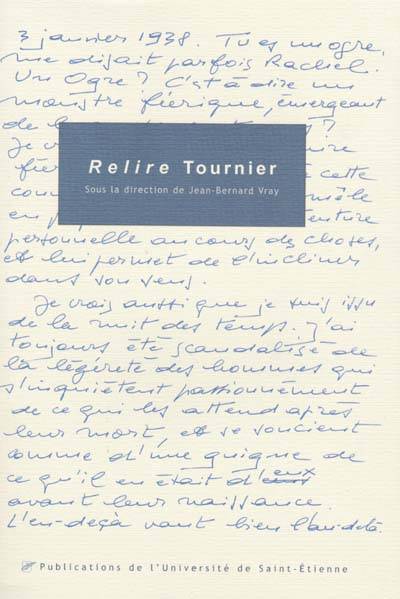 3 janvier 1938. Tu es un ogre,
me disait parfois Rachel.
Un Ogre? C'est à dire un
monstre féerique, émergeant
de la
Je
Relire Tournier
Sous la direction de Jean-Bernard Vray
cette
mêle
personnelle au cours des choses,
et lui permet de l'incliner
dans son sens.
Je crois aussi que je suis issu
de la nuit des temps. J'ai
toujours été scandalisé de
la légèreté des hommes qui
s'inquiètent passionnément
de ce qui les attend après
leur mort, et se soucient
comme d'une guigne de
ce qu'il en était d'eux
avant leur naissance.
L'en-deçà vaut bien l'au-delà.
Publications de l'Université de Saint-Étienne